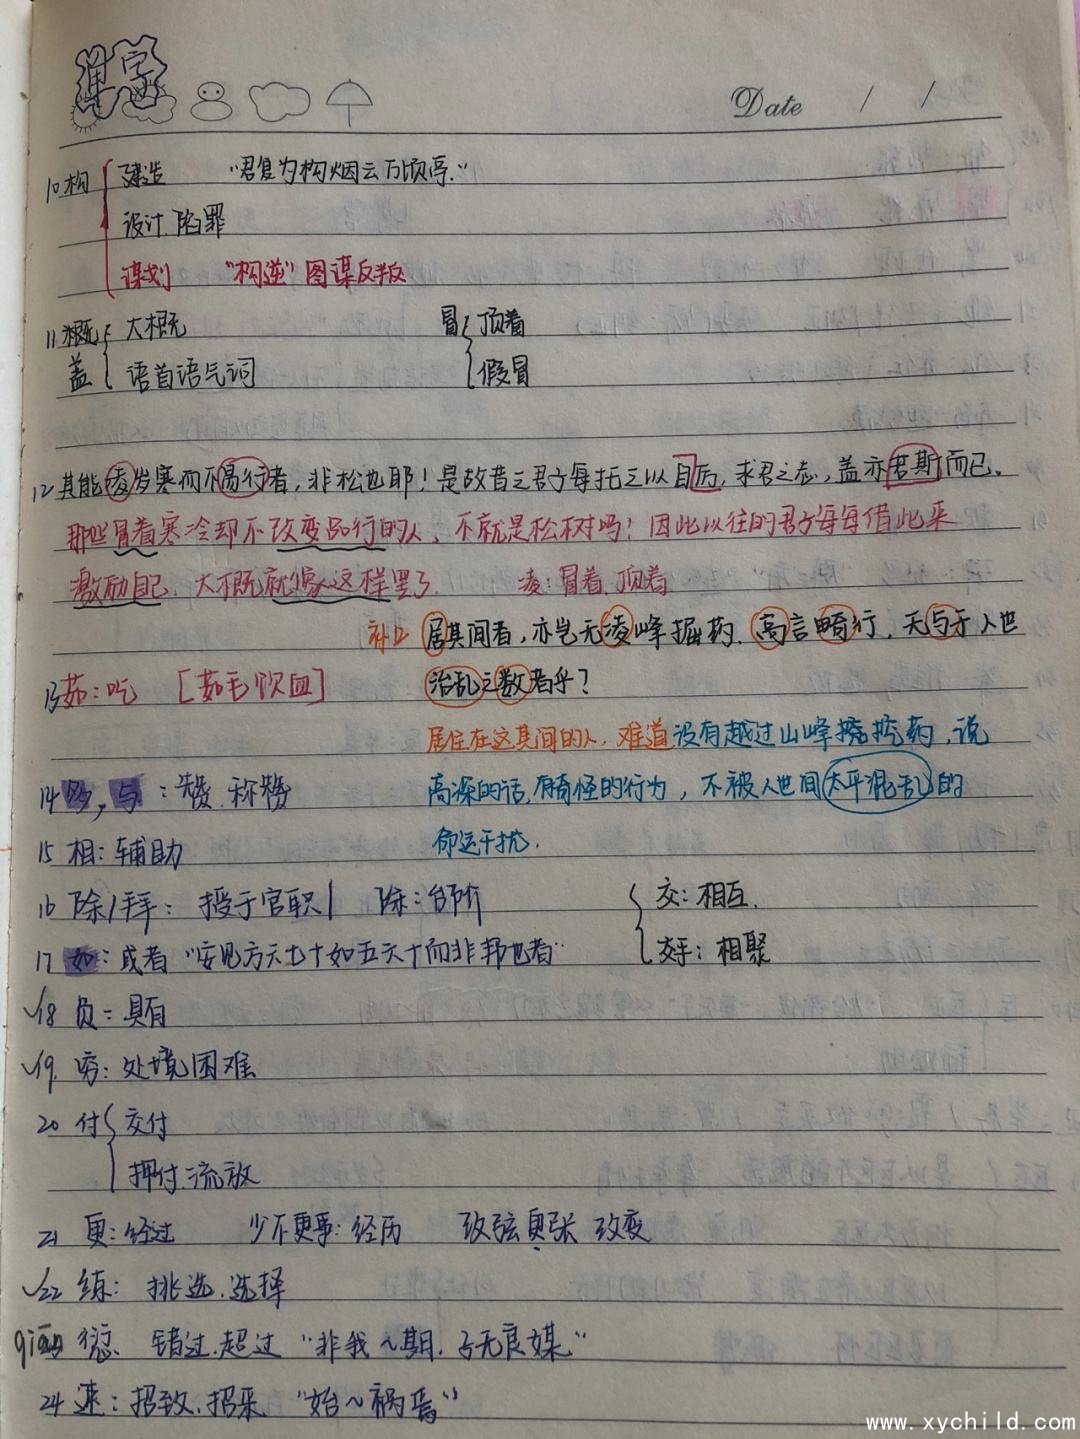 单字
Date / /
10 构 建造 "君复为构烟云万顷亭."
设计.陷罪
谋划 "构逆" 图谋反叛
11 概 大概 冒 顶着
盖 语首语气词 假冒
12 其能凌岁寒而不易行者,非松也耶!是故昔之君子每托之以自厉,求君之志,盖亦若斯而已。
那些冒着寒冷却不改变品行的人、不就是松树吗!因此以往的君子每每借此来
激励自己,大概就像这样罢了 凌:冒着.顶着
补12 居其间者,亦岂无凌峰掘药.高言畸行,无与于人世
13 茹:吃 [茹毛饮血] 治乱之数者乎?
居住在这其间的人,难道没有越过山峰挖药,说
14 与:赞.称赞 高深的话,有奇怪的行为,不被人世间太平混乱的
15 相:辅助 命运干扰.
16 除/拜:授于官职/ 除:台阶 交:相互.
17 如:或者 "安见方六七十如五六十而非邦也者" 交手:相聚
√18 负:具有
√19. 穷:处境困难
20 付 交付
押付.流放
21 更:经过 少不更事:经历 改弦更张 改变
√22 练:挑选.选择
qian 愆 错过.超过 "非我~期.子无良媒"
24 速:招致.招来 "始~祸焉"
www.xychild.com